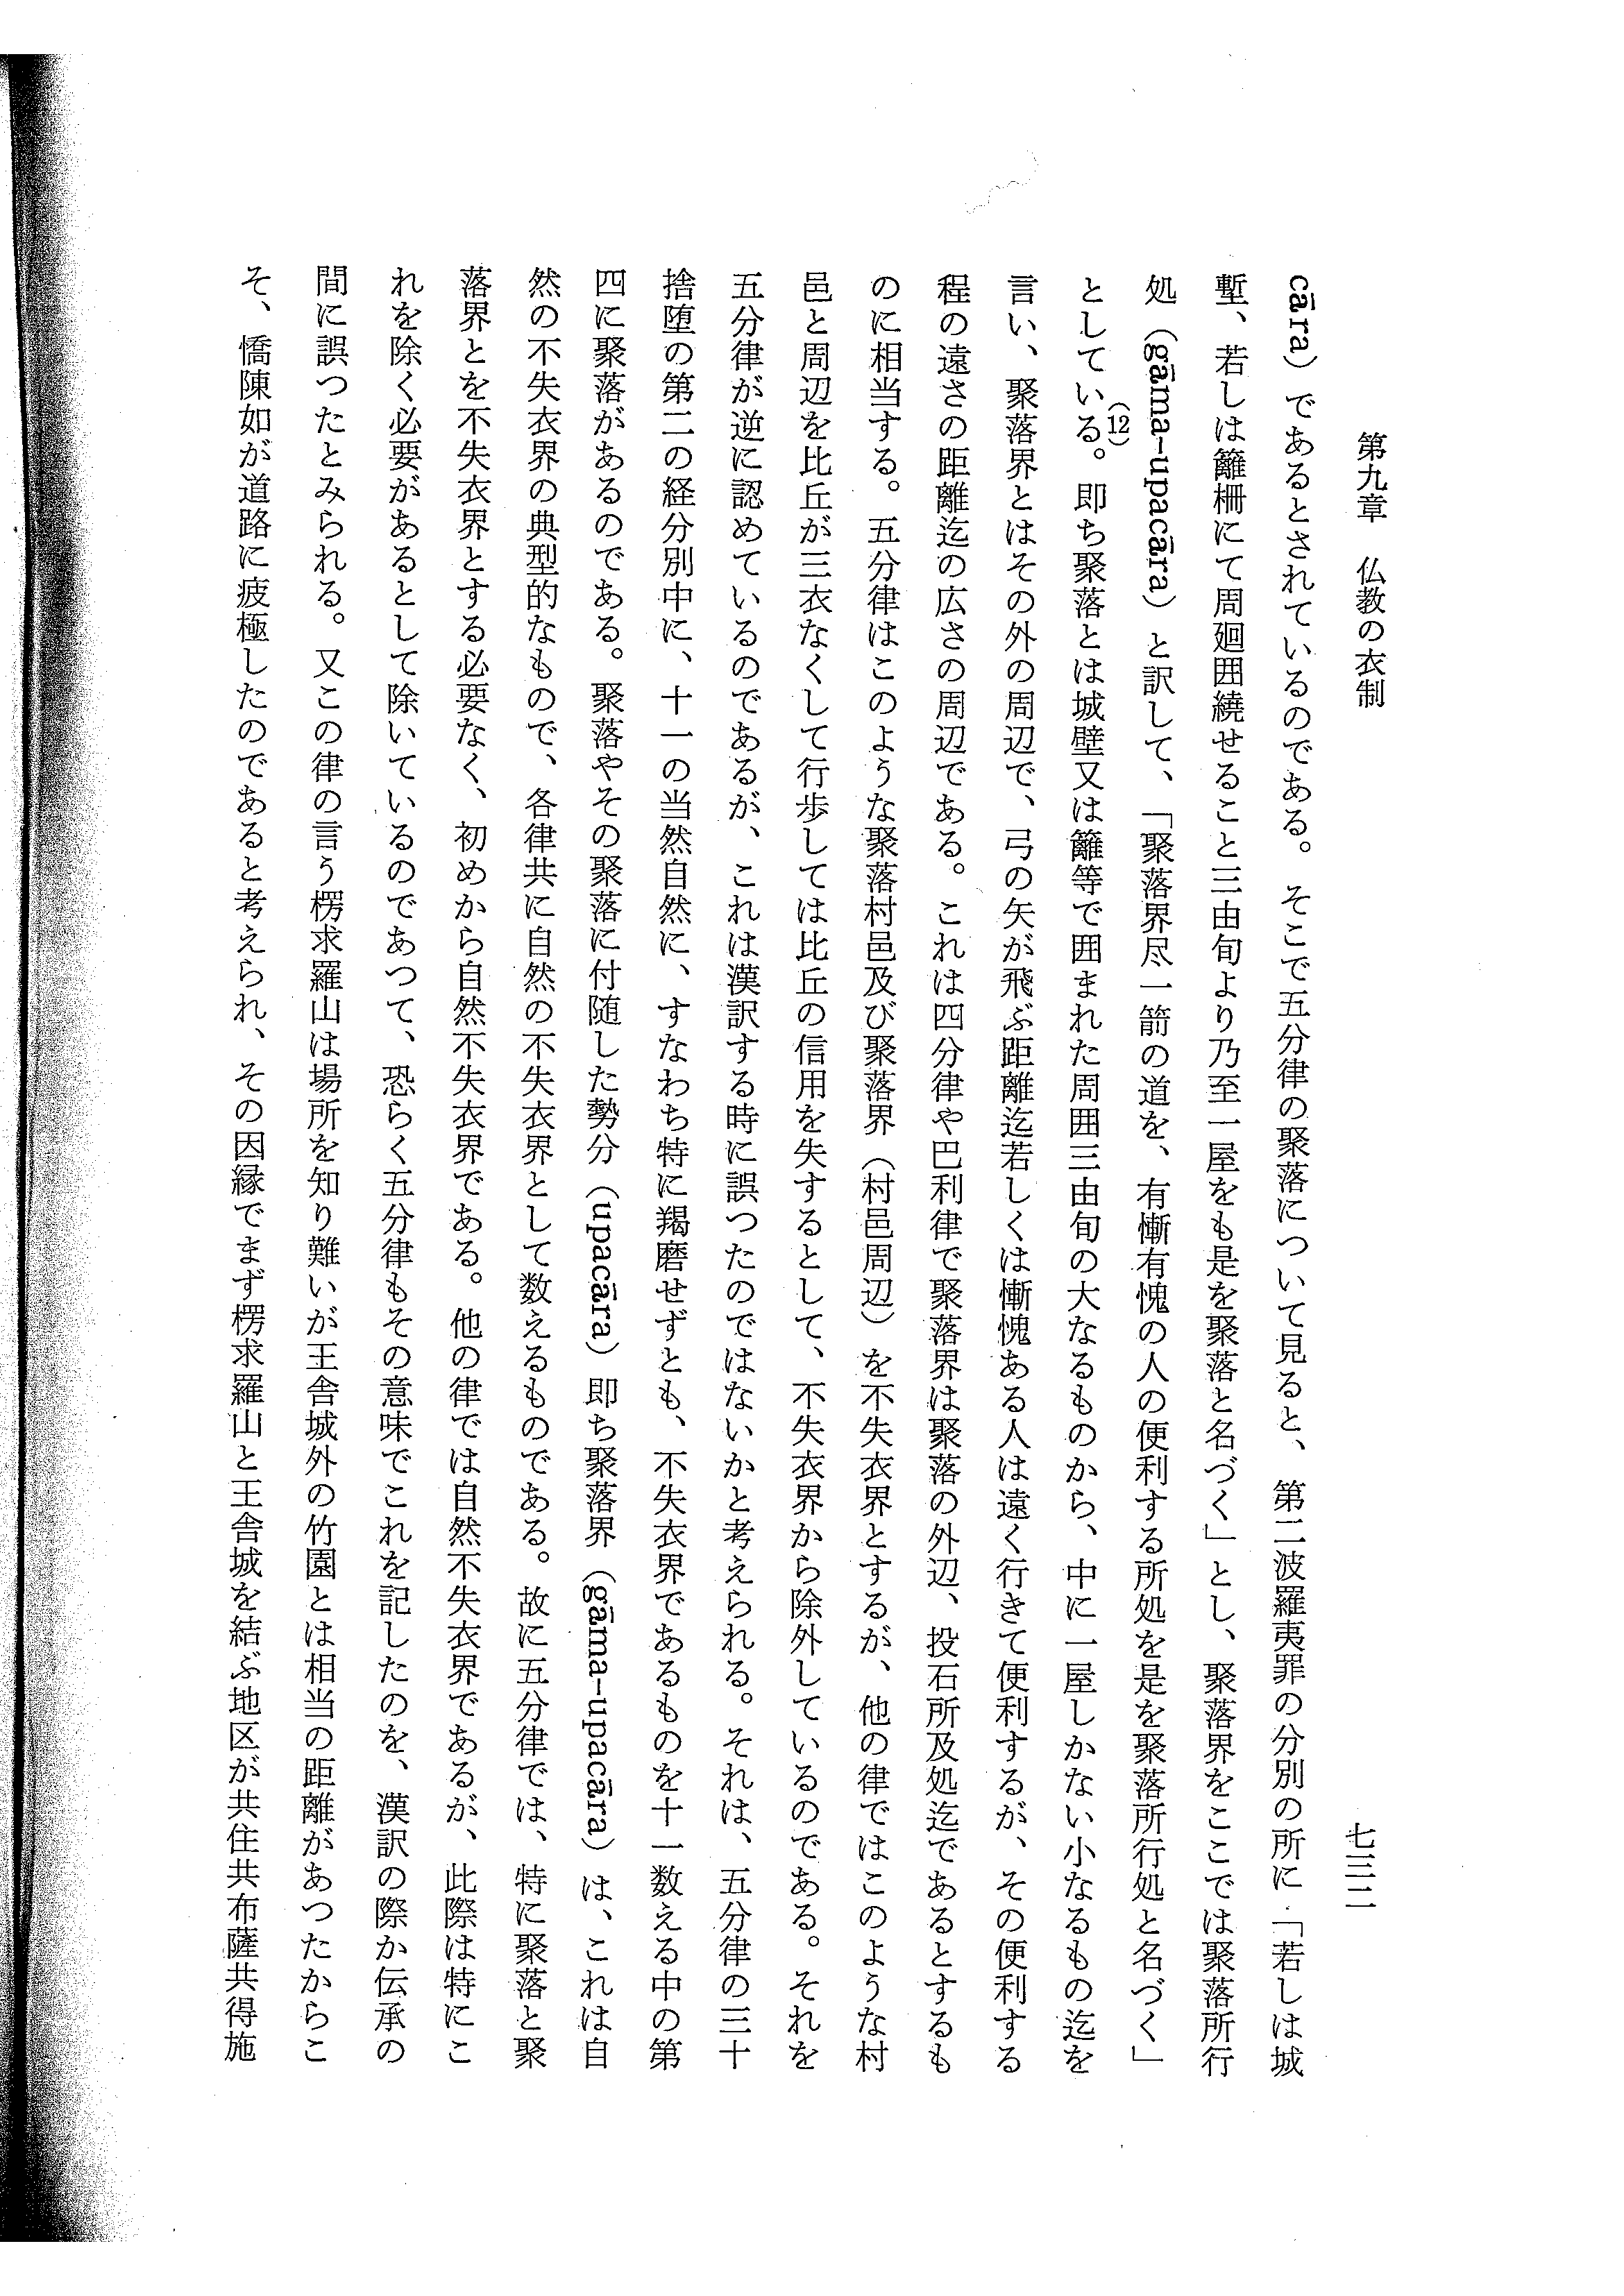 第九章　仏教の衣制
七三二
cāra）であるとされているのである。そこで五分律の聚落について見ると、第二波羅夷罪の分別の所に「若しは城
塹、若しは籬柵にて周廻囲繞せること三由旬より乃至一屋をも是を聚落と名づく」とし、聚落界をここでは聚落所行
処（gāma-upacāra）と訳して、「聚落界尽一箭の道を、有慚有愧の人の便利する所処を是を聚落所行処と名づく」
としている(12)。即ち聚落とは城壁又は籬等で囲まれた周囲三由旬の大なるものから、中に一屋しかない小なるもの迄を
言い、聚落界とはその外の周辺で、弓の矢が飛ぶ距離迄若しくは慚愧ある人は遠く行きて便利するが、その便利する
程の遠さの距離迄の広さの周辺である。これは四分律や巴利律で聚落界は聚落の外辺、投石所及処迄であるとするも
のに相当する。五分律はこのような聚落村邑及び聚落界（村邑周辺）を不失衣界とするが、他の律ではこのような村
邑と周辺を比丘が三衣なくして行歩しては比丘の信用を失するとして、不失衣界から除外しているのである。それを
五分律が逆に認めているのであるが、これは漢訳する時に誤つたのではないかと考えられる。それは、五分律の三十
捨堕の第二の経分別中に、十一の当然自然に、すなわち特に羯磨せずとも、不失衣界であるものを十一数える中の第
四に聚落があるのである。聚落やその聚落に付随した勢分（upacāra）即ち聚落界（gāma-upacāra）は、これは自
然の不失衣界の典型的なもので、各律共に自然の不失衣界として数えるものである。故に五分律では、特に聚落と聚
落界とを不失衣界とする必要なく、初めから自然不失衣界である。他の律では自然不失衣界であるが、此際は特にこ
れを除く必要があるとして除いているのであつて、恐らく五分律もその意味でこれを記したのを、漢訳の際か伝承の
間に誤つたとみられる。又この律の言う楞求羅山は場所を知り難いが王舎城外の竹園とは相当の距離があつたからこ
そ、憍陳如が道路に疲極したのであると考えられ、その因縁でまず楞求羅山と王舎城を結ぶ地区が共住共布薩共得施